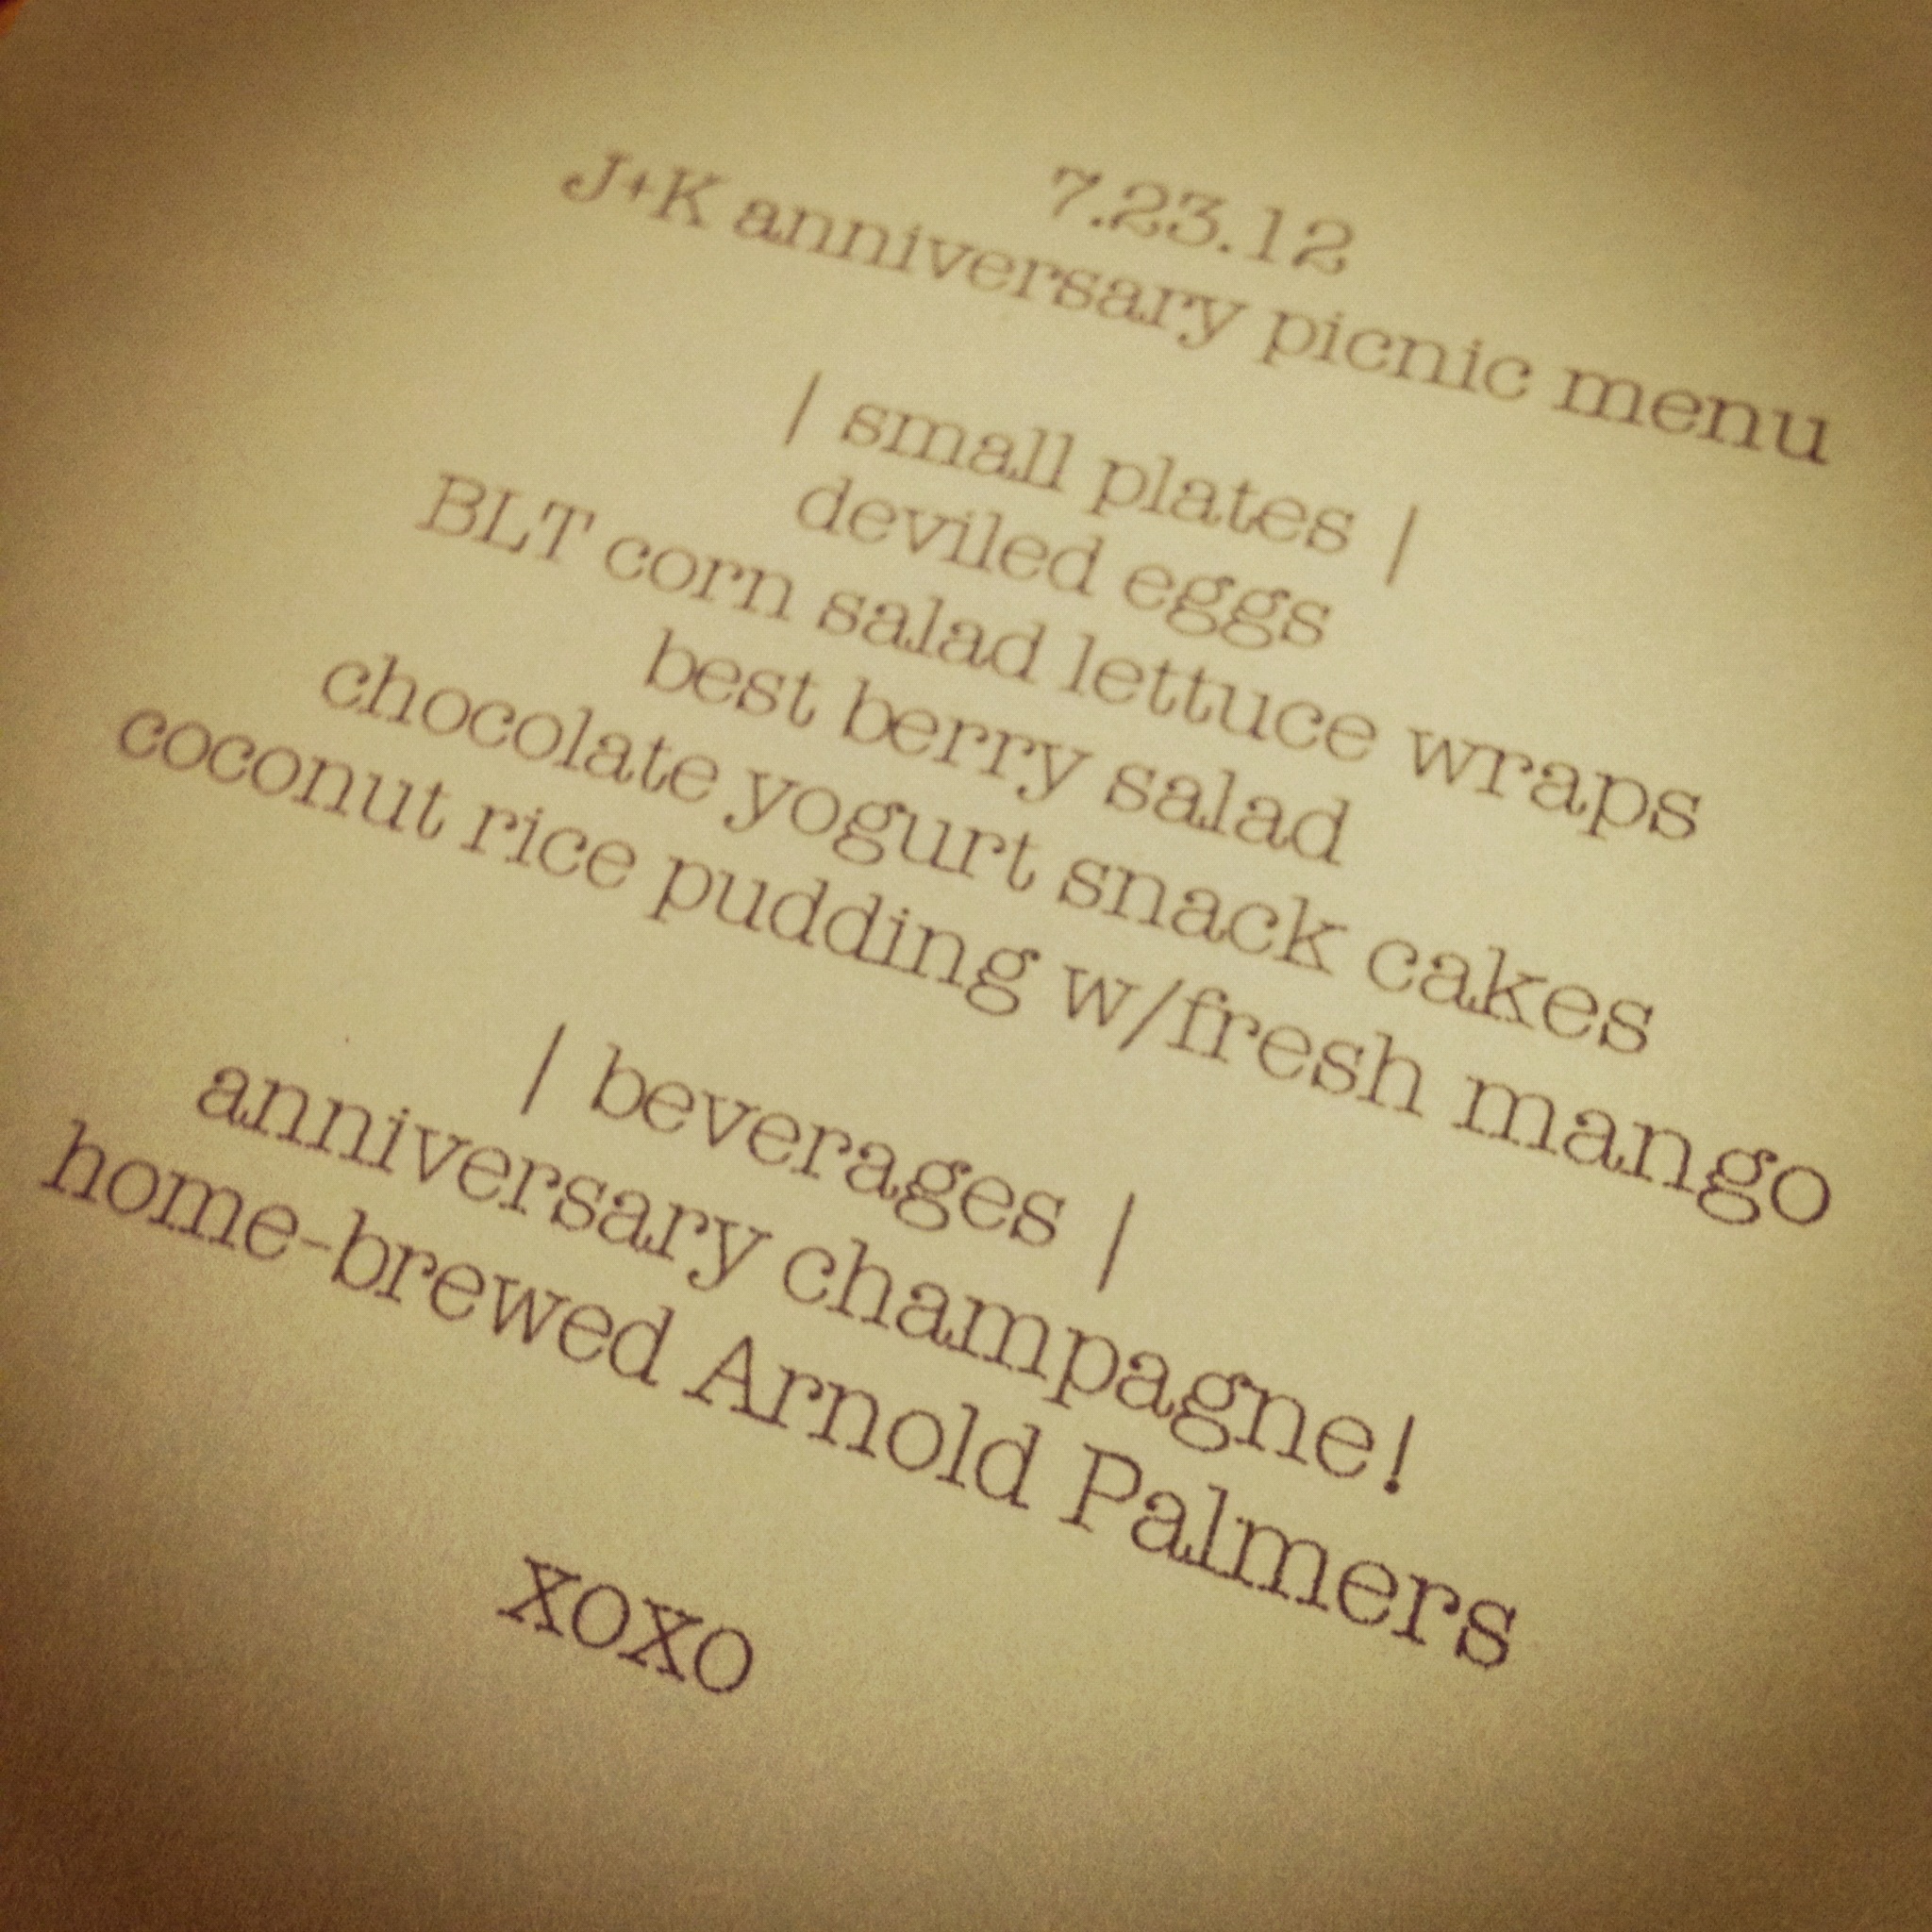 7.23.12
J+K anniversary picnic menu
| small plates |
deviled eggs
BLT corn salad lettuce wraps
best berry salad
chocolate yogurt snack cakes
coconut rice pudding w/fresh mango
| beverages |
anniversary champagne!
home-brewed Arnold Palmers
xoxo